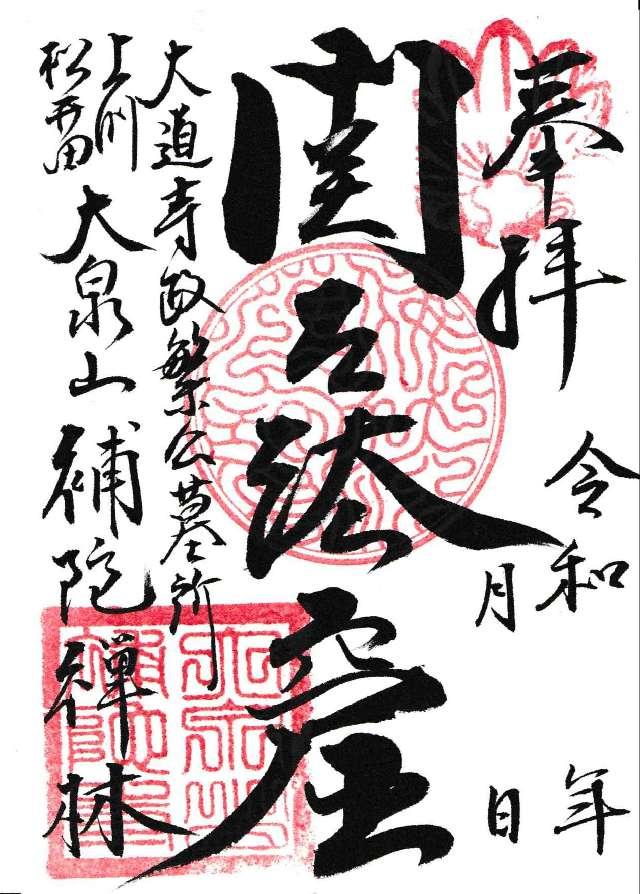 奉拝
令和 年
月 日
関左法窟
大道寺政繁公墓所
上州
松井田
大泉山補陀禅林